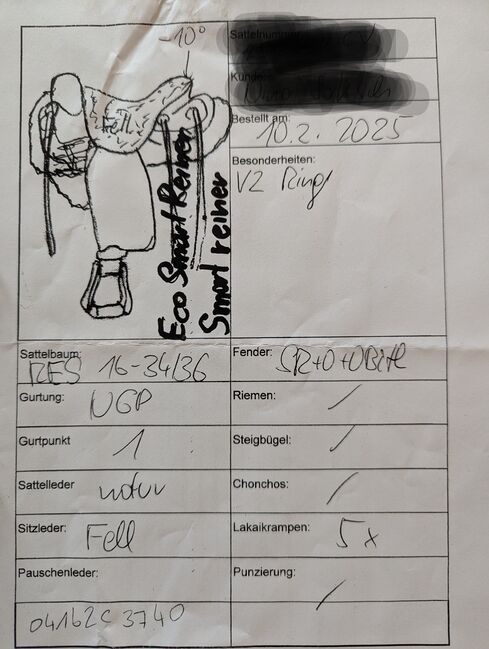 -10°
Fell
Eco Smart Reiner
Smart reiner
Sattelnummer
Kunde
Bestellt am:
10.2. 2025
Besonderheiten:
V2 Ring
Sattelbaum:
RES 16-34/36
Fender:
Gurtung:
NGP
Riemen:
Gurtpunkt
1
Steigbügel:
Sattelleder
natur
Chonchos:
Sitzleder:
Fell
Lakaikrampen:
5x
Pauschenleder:
Punzierung:
04162C3740